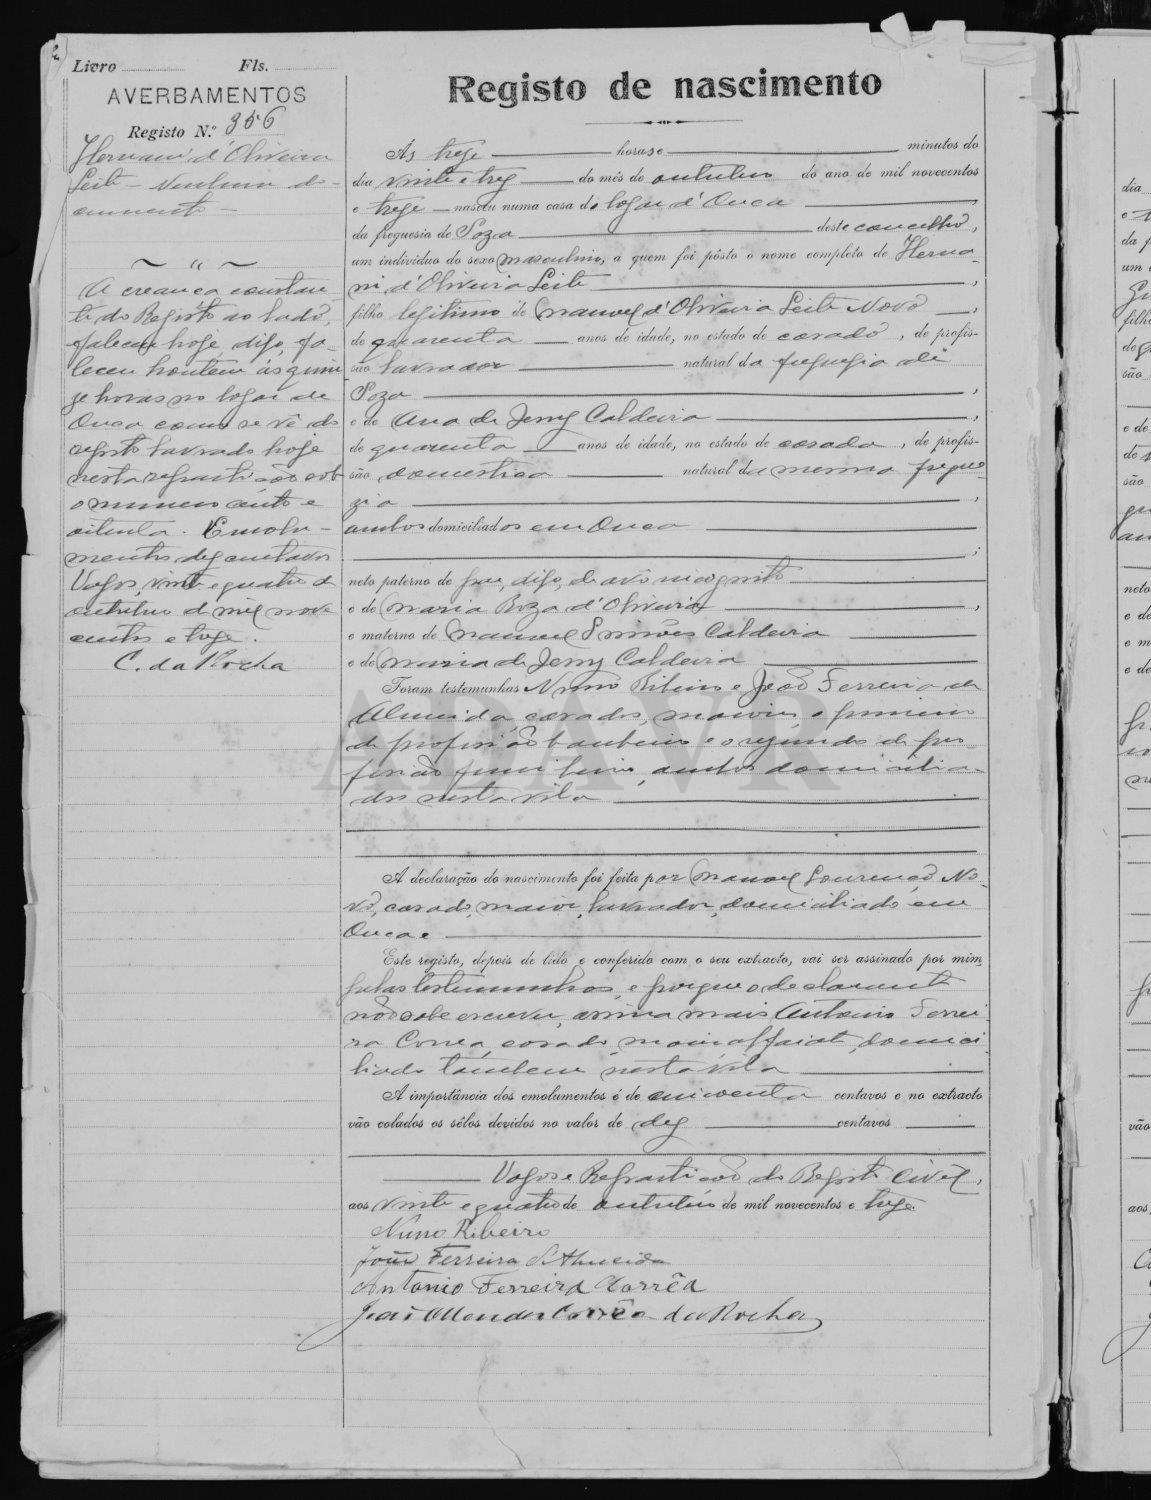 Livro Fls.
AVERBAMENTOS
Registo N.º 356
Hernani d'Oliveira
Leite - Nenhum do-
cumento -
~ " ~
A creança constan-
te do Registo ao lado,
faleceu hoje, digo, fa-
leceu hontem ás quin-
ze horas no logar de
Ouca como se vê do
registo lavrado hoje
nesta repartição sob
o numero cento e
oitenta. Emolu-
mentos dez centavos
Vagos, vinte e quatro de
outubro de mil nove
centos e treze.
C. da Rocha
Registo de nascimento
Às treze horas e minutos do
dia vinte e trez do mês de outubro do ano de mil novecentos
e treze nasceu numa casa do logar d'Ouca,
da freguesia de Soza deste concelho,
um indivíduo do sexo masculino, a quem foi pôsto o nome completo de Herna-
ni d'Oliveira Leite,
filho legitimo de Manuel d'Oliveira Leite Novo,
de quarenta anos de idade, no estado de casado, de profis-
são lavrador natural da freguezia de
Soza,
e de Ana de Jesus Caldeira,
de quarenta anos de idade, no estado de casada, de profis-
são domestica natural da mesma fregue-
zia,
ambos domiciliados em Ouca
;
neto paterno de pae, digo, de avô incognito
e de Maria Roza d'Oliveira,
e materno de Manuel Simões Caldeira
e de Maria de Jesus Caldeira
Foram testemunhas Nuno Ribeiro e João Ferreira de
Almeida, casados, maiores, o primeiro
de profissão barbeiro e o segundo de pro-
fissão funileiro, ambos domicilia-
dos nesta vila
ADAVR
A declaração do nascimento foi feita por Manoel Lourenço No-
vo, casado, maior, lavrador, domiciliado em
Ouca e
Este registo, depois de lido e conferido com o seu extracto, vai ser assinado por mim,
pelas testemunhas, e porque o declarante
não sabe escrever, assina mais Antonio Ferrei-
ra Corrêa, casado, maior, alfaiate, domici-
liado tambem nesta vila
A importância dos emolumentos é de cincoenta centavos e no extracto
vão colados os sêlos devidos no valor de dez centavos
Vagos e Repartição do Registo Civil,
aos vinte e quatro de outubro de mil novecentos e treze
Nuno Ribeiro
João Ferreira d'Almeida
Antonio Ferreira Corrêa
João Mendes Corrêa da Rocha
dia
e
da
um
filho
de
são
e de
de
são
neto
e de
e m
e de
vão
aos